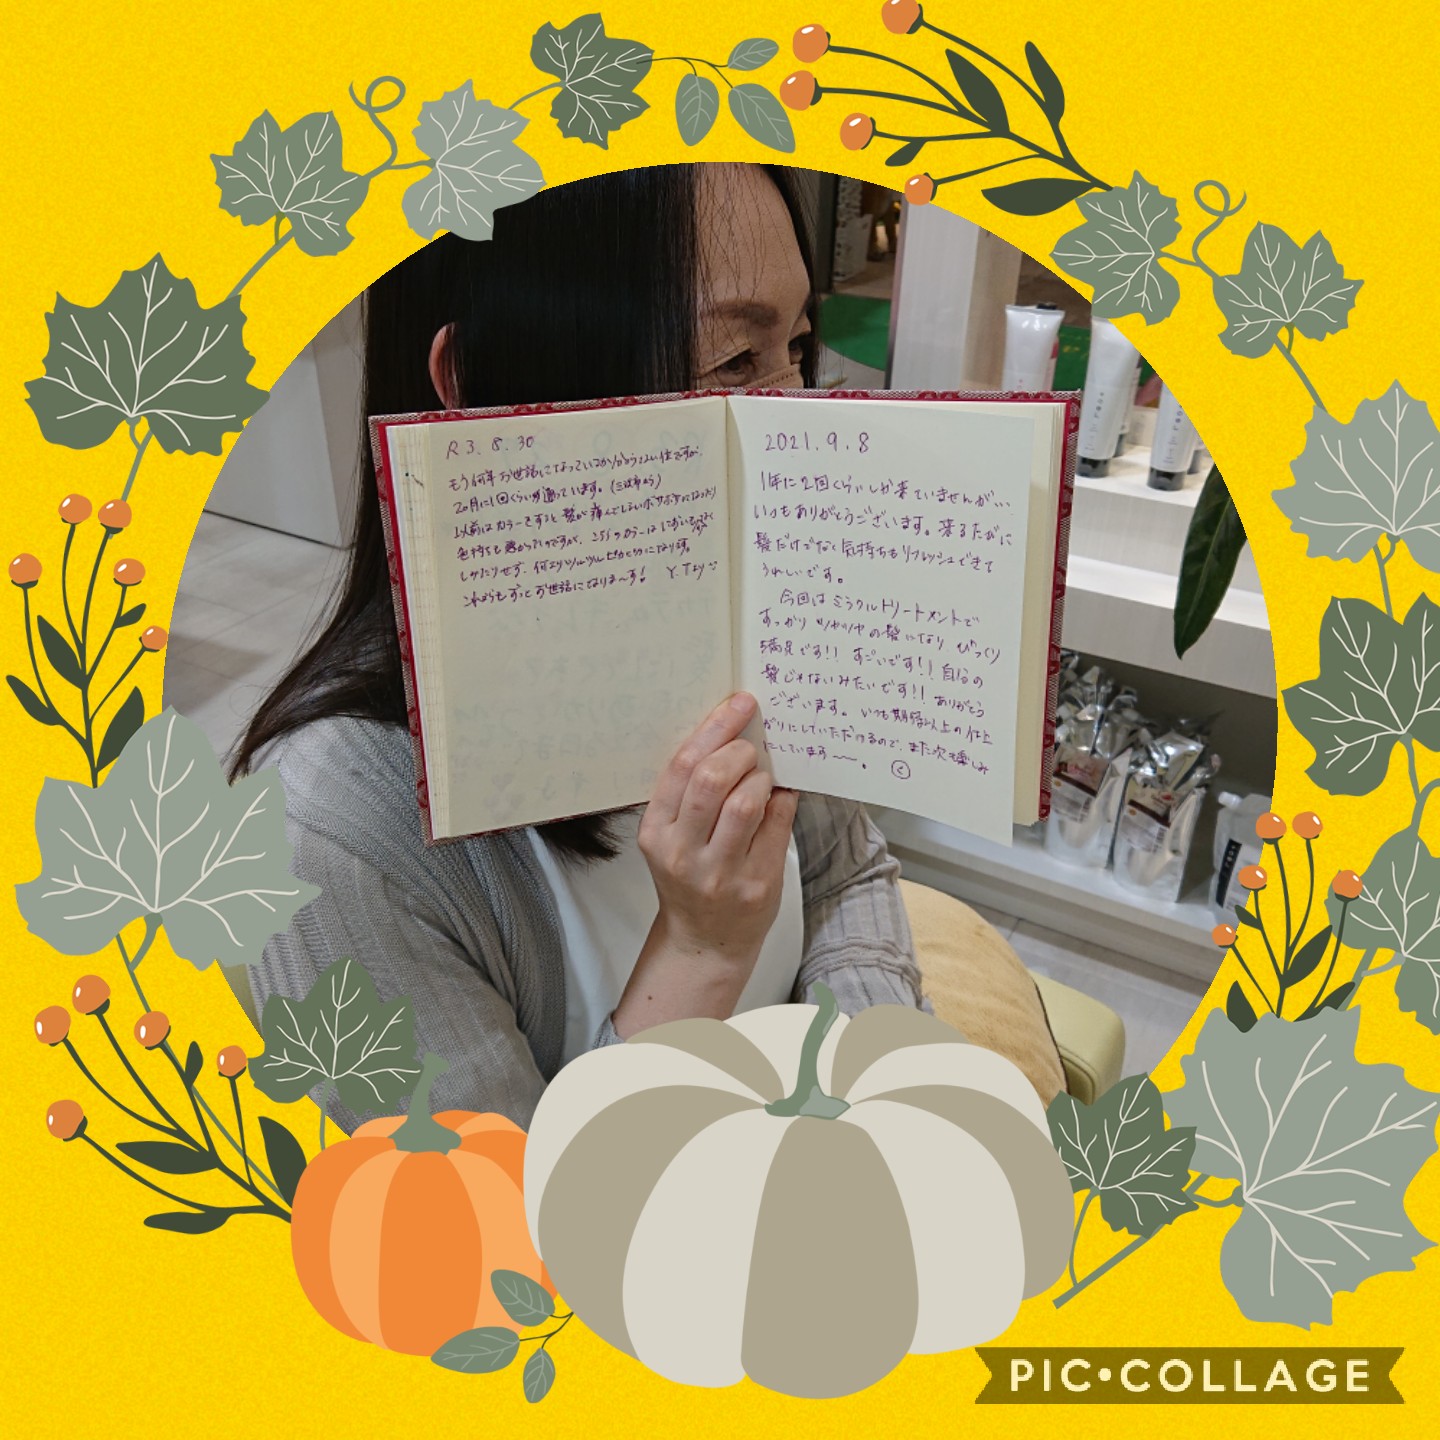 R3.8.30
もう何年お世話になっているか分からない位ですが、
2ヵ月に1回くらい通っています。(三次市から)
以前はカラーをすると髪が痛んでしまいボサボサになったり
色持ちも悪かったのですが、こちらのカラーは においも
しみたりせず、何よりツルツルピカピカになります。
これからもずっとお世話になりま〜す! Y.Tより
2021.9.8
1年に2回くらいしか来ていませんが…
いつもありがとうございます。来るたびに
髪だけでなく気持ちもリフレッシュできて
うれしいです。
今回はミラクルトリートメントで
すっかりツヤツヤの髪になり びっくり
満足です!! すごいです!! 自分の
髪じゃないみたいです!! ありがとう
ございます。いつも期待以上の仕上
がりにしていただけるので、また次も楽しみ
にしています〜。 く
PIC•COLLAGE